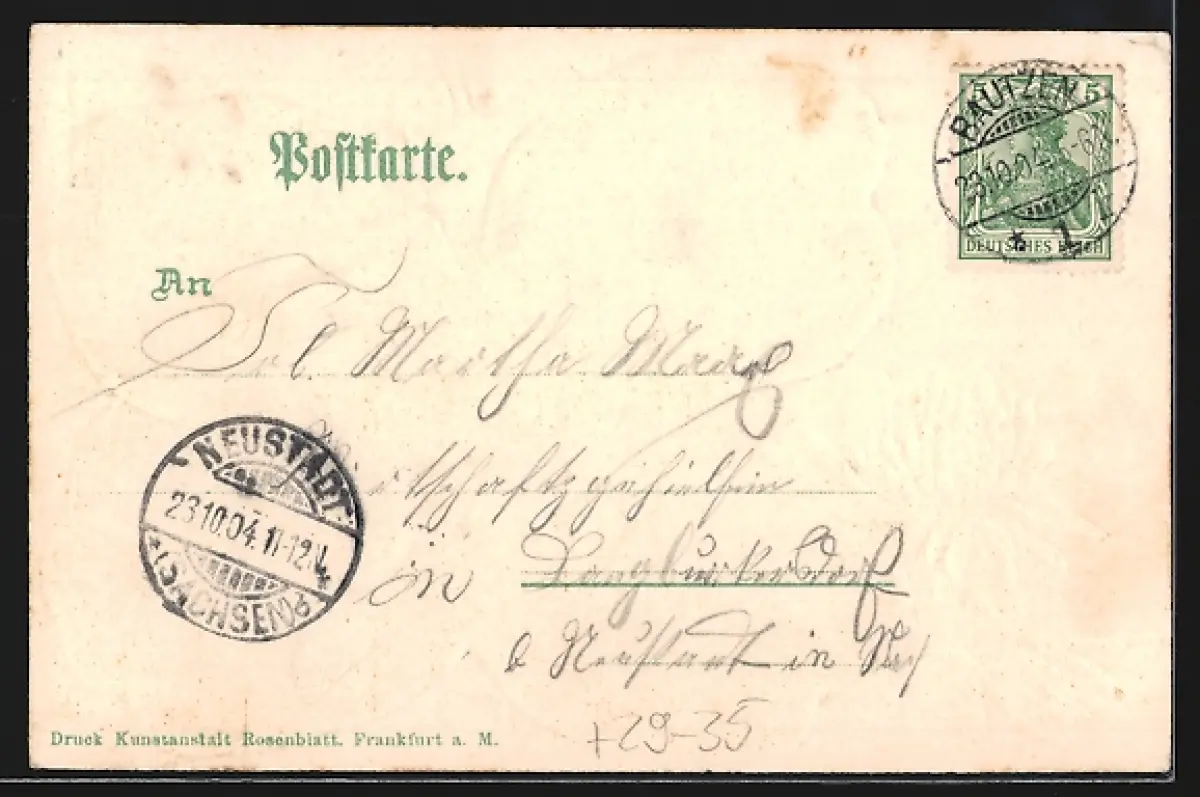 Postkarte.
5 5
BAUTZEN
23.10.04. 6-7V.
* 1
DEUTSCHES REICH
An
Frl. Martha
NEUSTADT
23.10.04. 11-12V.
* (SACHSEN) *
in Langburkersdorf
b Neustadt in
+29-35
Druck Kunstanstalt Rosenblatt. Frankfurt a. M.